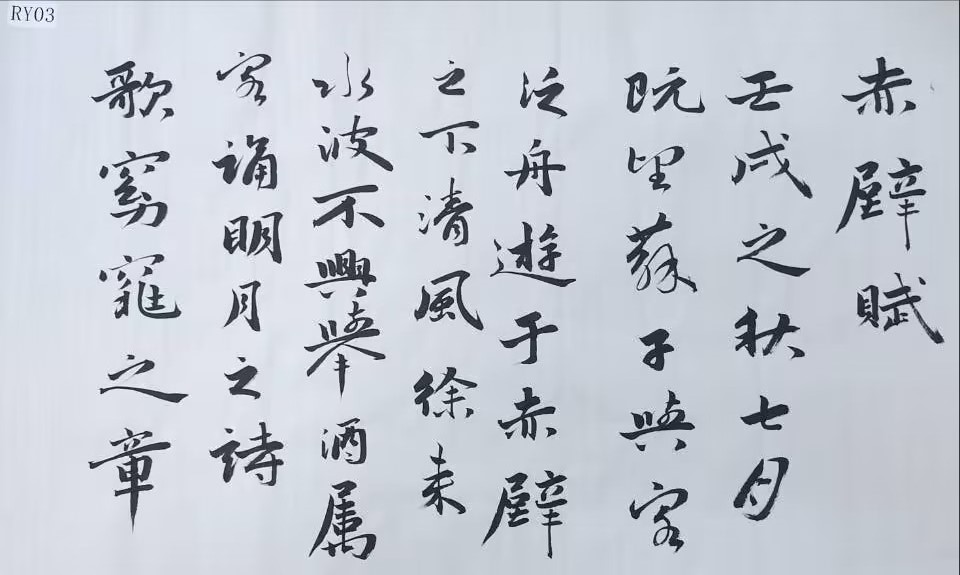 RY03
赤壁賦
壬戌之秋七月
既望蘇子與客
泛舟遊于赤壁
之下清風徐来
水波不興舉酒属
客誦明月之詩
歌窈窕之章